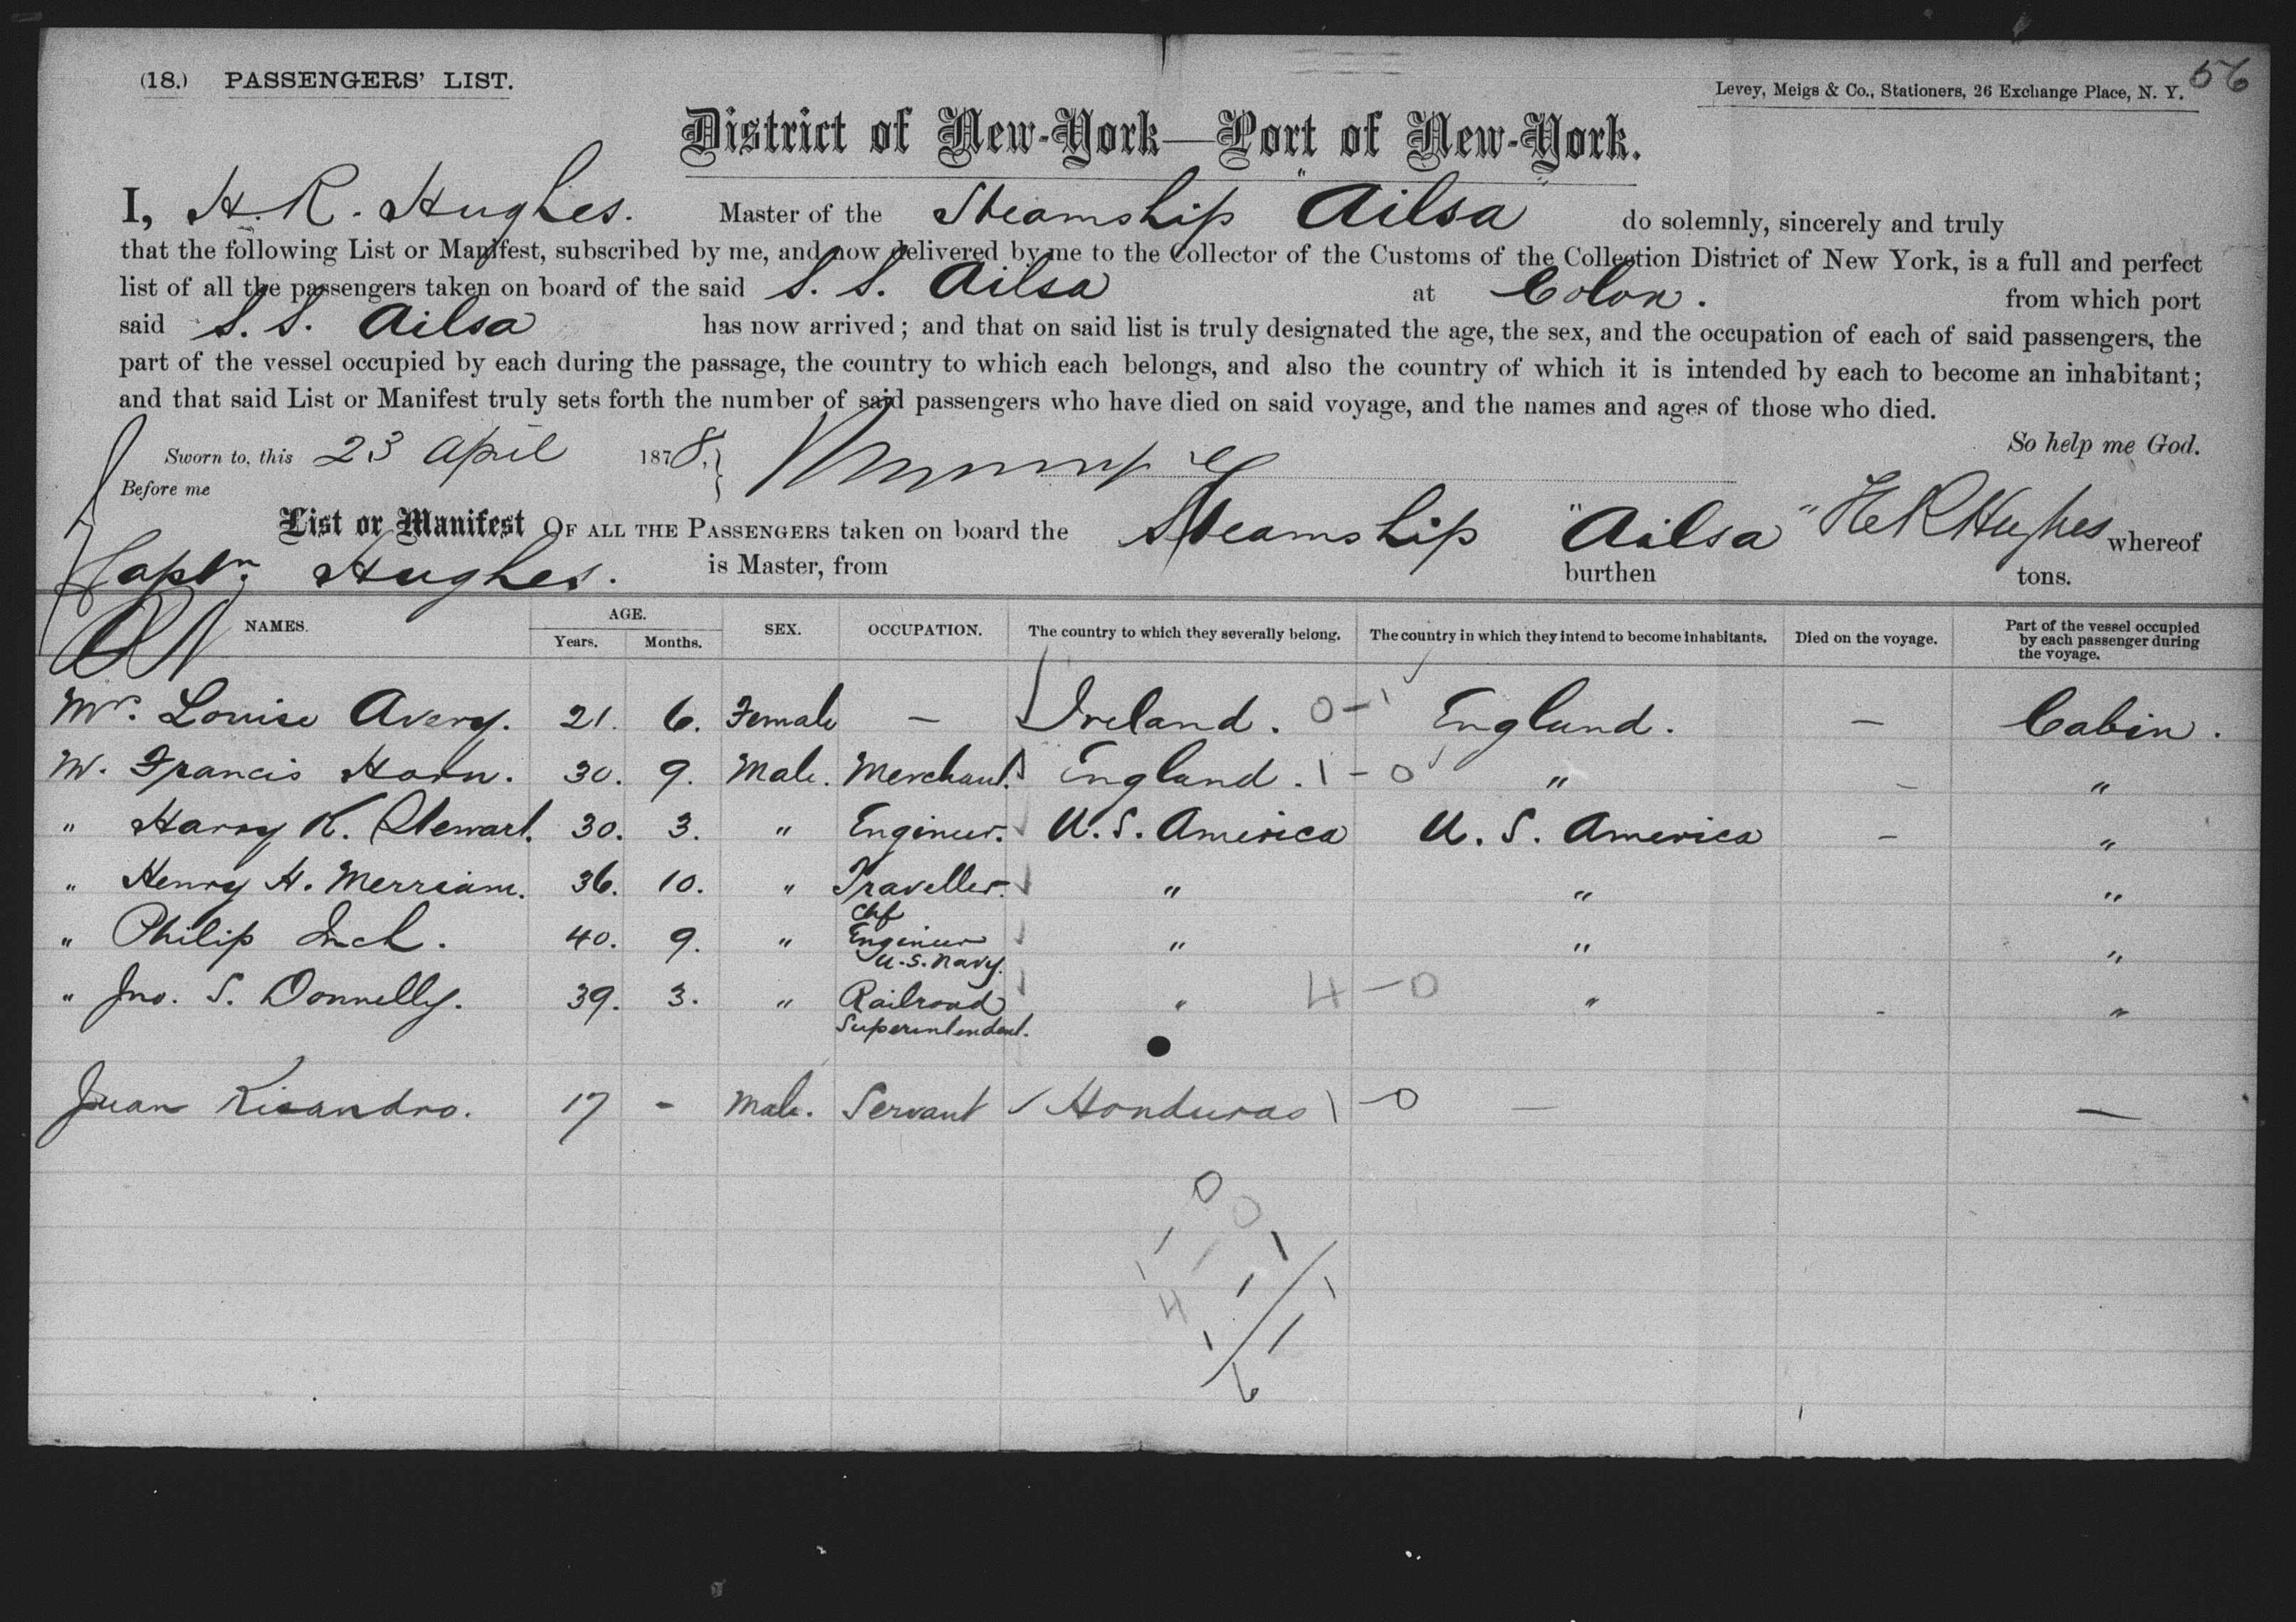 (18.) PASSENGERS' LIST.
Levey, Meigs & Co., Stationers, 26 Exchange Place, N. Y. 56
District of New-York—Port of New-York.
I, H. R. Hughes. Master of the Steamship "Ailsa" do solemnly, sincerely and truly
that the following List or Manifest, subscribed by me, and now delivered by me to the Collector of the Customs of the Collection District of New York, is a full and perfect
list of all the passengers taken on board of the said S. S. Ailsa at Colon. from which port
said S. S. Ailsa has now arrived; and that on said list is truly designated the age, the sex, and the occupation of each of said passengers, the
part of the vessel occupied by each during the passage, the country to which each belongs, and also the country of which it is intended by each to become an inhabitant;
and that said List or Manifest truly sets forth the number of said passengers who have died on said voyage, and the names and ages of those who died.
So help me God.
Sworn to, this 23 April 1878.
Before me
List or Manifest OF ALL THE PASSENGERS taken on board the Steamship "Ailsa" H R Hughes whereof
Captn. Hughes. is Master, from burthen tons.
NAMES. AGE. Years. Months. SEX. OCCUPATION. The country to which they severally belong. The country in which they intend to become inhabitants. Died on the voyage. Part of the vessel occupied by each passenger during the voyage.
Louise Avery. 21. 6. Female – Ireland. 0-1 England. – Cabin.
M. Francis Horn. 30. 9. Male. Merchant. England. 1-0 " – "
" Harry K. Stewart. 30. 3. " Engineer. U. S. America U. S. America – "
" Henry H. Merriam. 36. 10. " Traveller. " " "
" Philip Inch. 40. 9. " Chf Engineer U. S. Navy. " " "
" Jno. S. Donnelly. 39. 3. " Railroad Superintendent. " 4-0 " - "
Juan Risandro. 17 - Male. Servant Honduras 1-0 — —